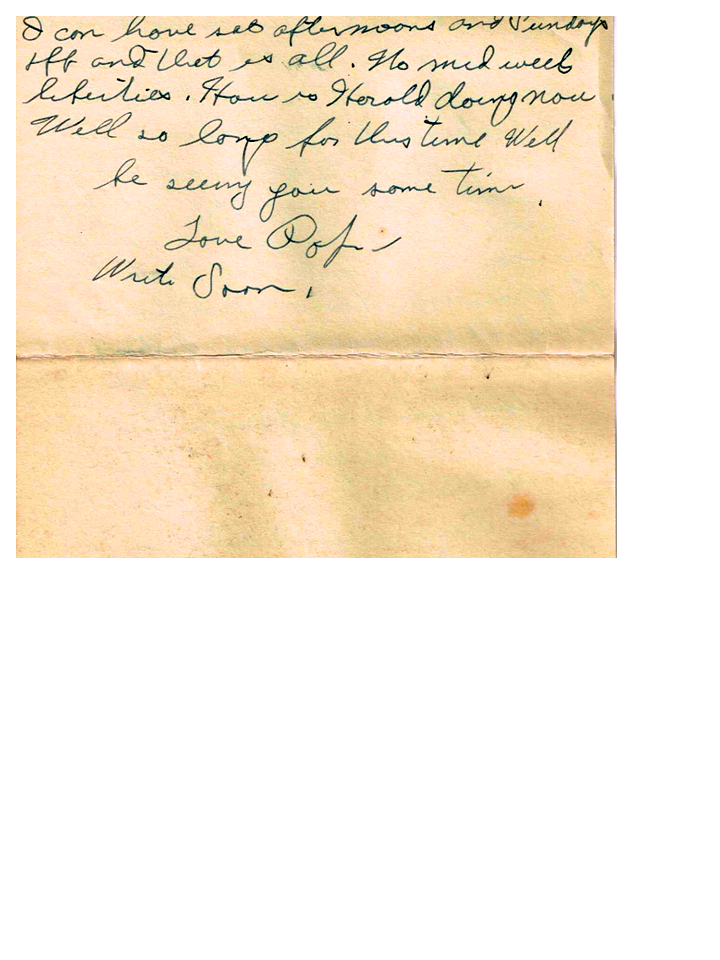 I can have sat afternoons and Sundays
off and that is all. No mid week
liberties. How is Harold doing now.
Well so long for this time Well
be seeing you some time.
Love Pop
Write Soon,